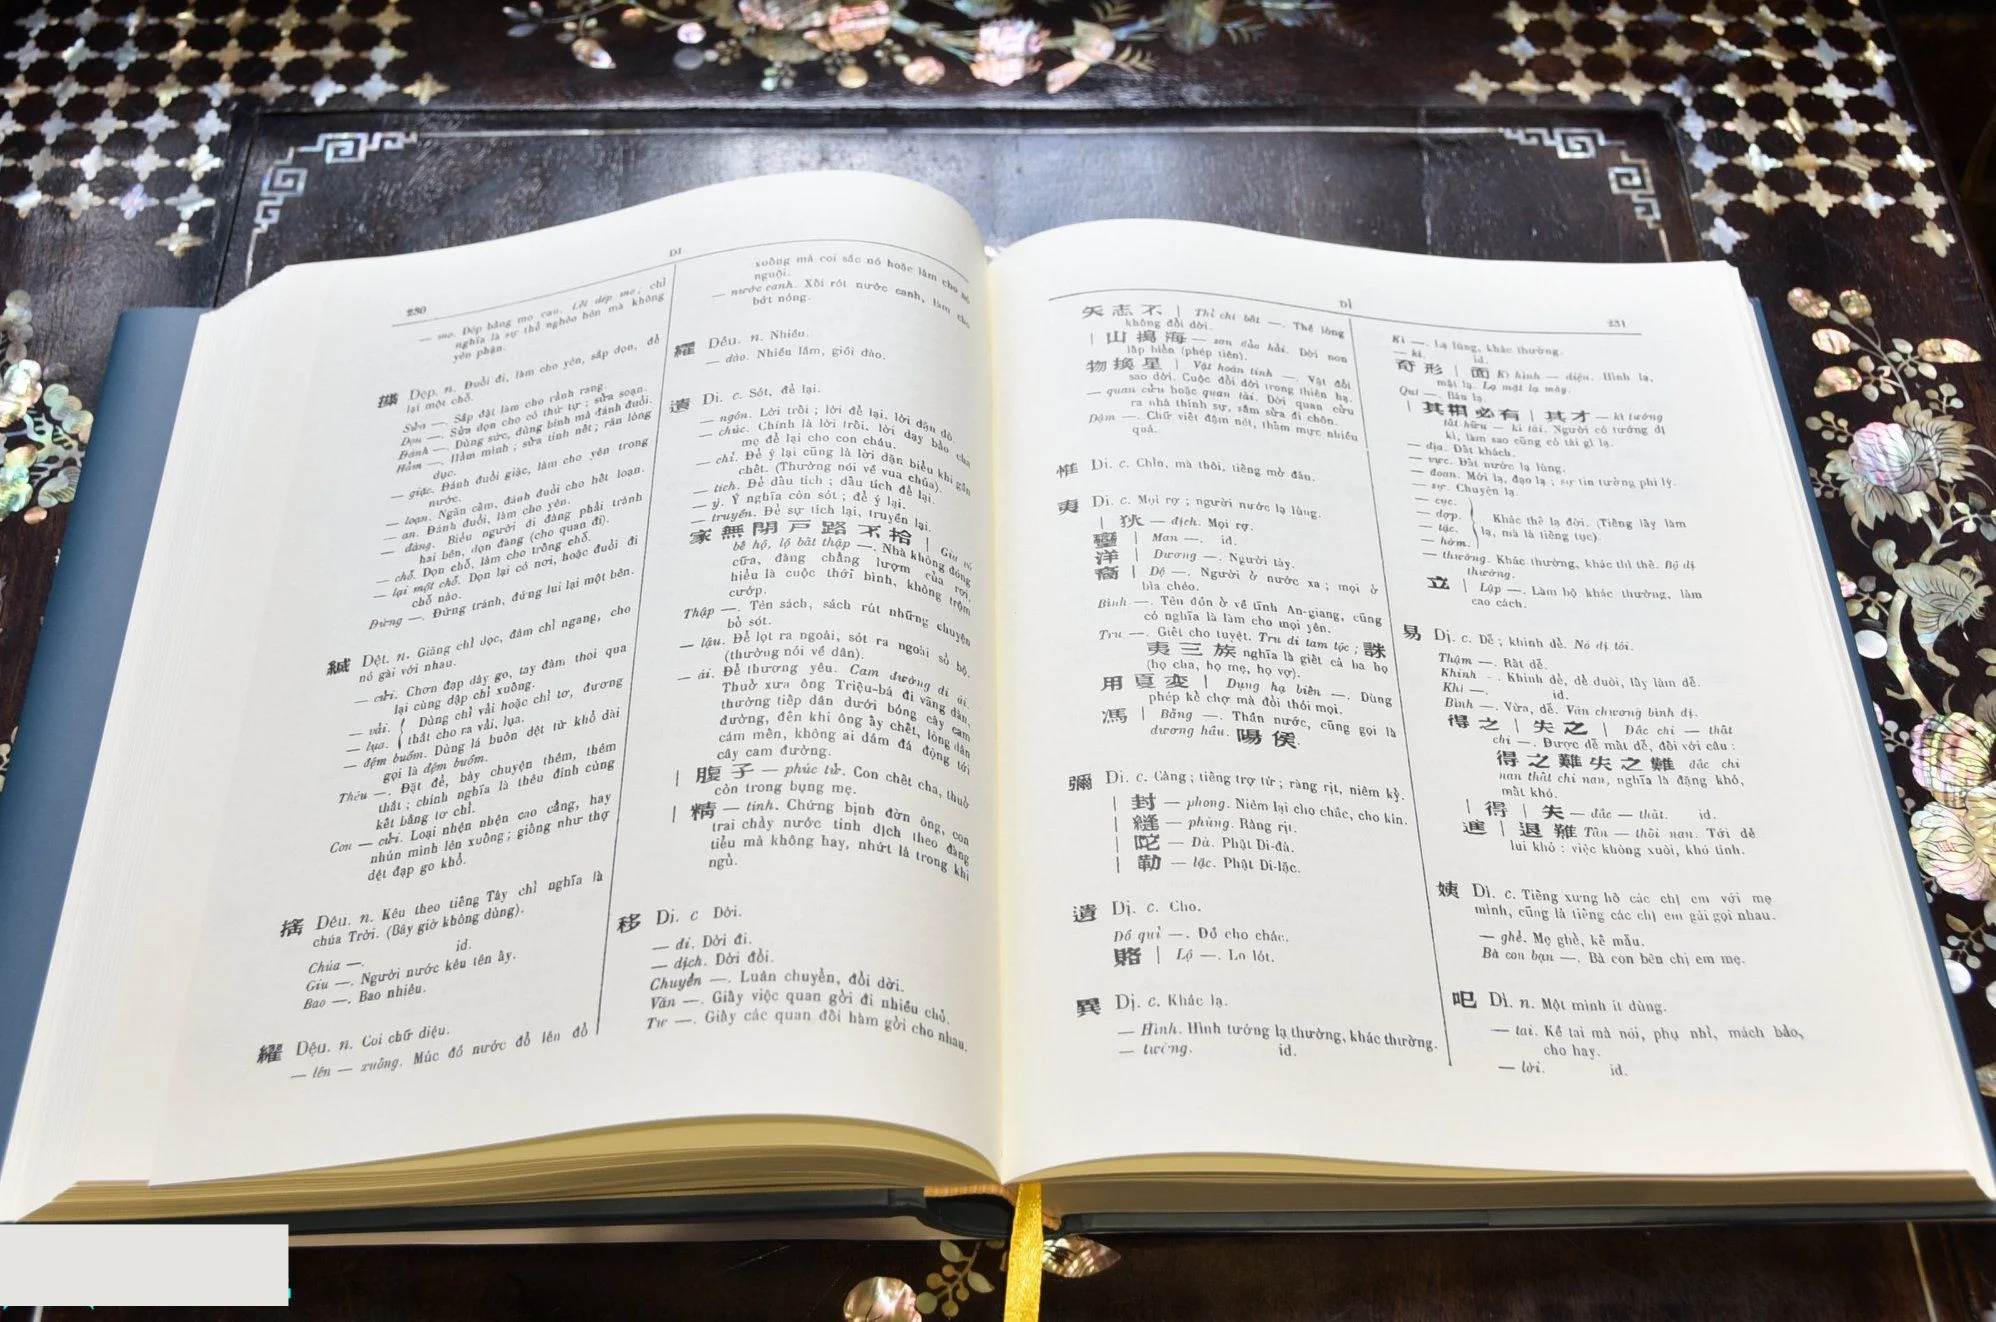 230
DI
— mo. Dép bằng mo cau. Lết dép mo: chỉ
nghĩa là sự thể nghèo hèn mà không
yên phận.
Dẹp. n. Đuổi đi, làm cho yên, sắp dọn, để
lại một chỗ.
Sửa —. Sắp đặt làm cho rảnh rang.
Dọn —. Sửa dọn cho có thứ tự; sửa soạn.
Đánh —. Dùng sức, dùng binh mà đánh đuổi.
Hẩm —. Hẩm mình; sửa tính nết; răn lòng
dục.
— giặc. Đánh đuổi giặc, làm cho yên trong
nước.
— loạn. Ngăn cấm, đánh đuổi cho hết loạn.
— an. Đánh đuổi, làm cho yên.
— đàng. Biểu người đi đàng phải tránh
hai bên, dọn đàng (cho quan đi).
— chỗ. Dọn chỗ, làm cho trống chỗ.
— lại một chỗ. Dọn lại có nơi, hoặc đuổi đi
chỗ nào.
Đứng —. Đứng tránh, đứng lui lại một bên.
Dệt. n. Giăng chỉ dọc, đâm chỉ ngang, cho
nó gài với nhau.
— cửi. Chơn đạp dây go, tay đâm thoi qua
lại cùng dập chỉ xuống.
— vải.
— lụa.
Dùng chỉ vải hoặc chỉ tơ, đương
thắt cho ra vải, lụa.
— đệm buồm. Dùng lá buôn dệt từ khổ dài
gọi là đệm buồm.
Thêu —. Đặt để, bày chuyện thêm, thêm
thắt; chính nghĩa là thêu đính cùng
kết bằng tơ chỉ.
Con — cửi. Loại nhện nhện cao cẳng, hay
nhún mình lên xuống; giống như thợ
dệt đạp go khổ.
Dêu. n. Kêu theo tiếng Tây chỉ nghĩa là
chúa Trời. (Bây giờ không dùng).
Chúa —. id.
Giu —. Người nước kêu tên ấy.
Bao —. Bao nhiêu.
Dệu. n. Coi chữ diệu.
— lên — xuống. Múc đổ nước đổ lên đổ
xuống mà coi sắc nó hoặc làm cho nó
nguội.
— nước canh. Xối rót nước canh, làm cho
bớt nóng.
Dều. n. Nhiều.
— dào. Nhiều lắm, giồi dào.
遺 Di. c. Sót, để lại.
— ngôn. Lời trối; lời để lại, lời dặn dò.
— chúc. Chính là lời trối, lời dạy bảo cha
mẹ để lại cho con cháu.
— chỉ. Để ý lại cũng là lời dặn biểu khi gần
chết. (Thường nói về vua chúa).
— tích. Để dấu tích; dấu tích để lại.
— ý. Ý nghĩa còn sót; để ý lại.
— truyền. Để sự tích lại, truyền lại.
家無閉戸路不拾 | Gia vô
bế hộ, lộ bất thập —. Nhà không đóng
cữa, đàng chẳng lượm của rơi,
hiểu là cuộc thới bình, không trộm
cướp.
Thập —. Tên sách, sách rút những chuyện
bỏ sót.
— lậu. Để lọt ra ngoài, sót ra ngoài sổ bộ.
(thường nói về dân).
— ái. Để thương yêu. Cam đường di ái.
Thuở xưa ông Triệu-bá đi vãng dân,
thường tiếp dân dưới bóng cây cam
đường, đến khi ông ấy chết, lòng dân
cảm mến, không ai dám đá động tới
cây cam đường.
| 腹子 — phúc tử. Con chết cha, thuở
còn trong bụng mẹ.
| 精 — tinh. Chứng bịnh đờn ông, con
trai chảy nước tinh dịch theo đàng
tiểu mà không hay, nhứt là trong khi
ngủ.
移 Di. c Dời.
— đi. Dời đi.
— dịch. Dời đổi.
Chuyển —. Luân chuyển, đổi dời.
Văn —. Giấy việc quan gởi đi nhiều chỗ.
Tư —. Giấy các quan đồi hàm gởi cho nhau.
DỈ
231
矢志不 | Thỉ chí bất —. Thề lòng
không đổi dời.
| 山搗海 — san đảo hải. Dời non
lấp biển (phép tiên).
物換星 | Vật hoán tinh —. Vật đổi
sao dời. Cuộc đổi dời trong thiên hạ.
— quan cửu hoặc quan tài. Dời quan cữu
ra nhà thính sự, sắm sửa đi chôn.
Dậm —. Chữ viết đậm nét, thấm mực nhiều
quá.
惟 Di. c. Chỉn, mà thôi, tiếng mở đầu.
夷 Di. c. Mọi rợ; người nước lạ lùng.
| 狄 — địch. Mọi rợ.
蠻 | Man —. id.
洋 | Dương —. Người tây.
裔 | Dệ —. Người ở nước xa; mọi ở
bìa chéo.
Bình —. Tên đồn ở về tỉnh An-giang, cũng
có nghĩa là làm cho mọi yên.
Tru —. Giết cho tuyệt. Tru di tam tộc; 誅
夷三族 nghĩa là giết cả ba họ
(họ cha, họ mẹ, họ vợ).
用夏変 | Dụng hạ biến —. Dùng
phép kẻ chợ mà đổi thói mọi.
馮 | Bằng —. Thần nước, cũng gọi là
dương hầu. 陽侯.
彌 Di. c. Càng; tiếng trợ từ; ràng rịt, niêm kỹ.
| 封 — phong. Niêm lại cho chắc, cho kín.
| 縫 — phùng. Ràng rịt.
| 陀 — Đà. Phật Di-đà.
| 勒 — lặc. Phật Di-lặc.
遺 Dị. c. Cho.
Đồ quỉ —. Đồ cho chác.
賂 | Lộ —. Lo lót.
異 Dị. c. Khác lạ.
— Hình. Hình tướng lạ thường, khác thường.
— tướng. id.
Kì —. Lạ lùng, khác thường.
— kì. id.
奇形 | 面 Kì hình — diện. Hình lạ,
mặt lạ. Lạ mặt lạ mày.
Quí —. Báu lạ.
| 其相必有 | 其才 — kì tướng
tất hữu — kì tài. Người có tướng dị
kì, làm sao cũng có tài gì lạ.
— địa. Đất khách.
— vực. Đất nước lạ lùng.
— đoan. Mối lạ, đạo lạ; sự tin tưởng phi lý.
— sự. Chuyện lạ.
— cục.
— dợp.
— tặc.
— hợm.
Khác thể lạ đời. (Tiếng lấy làm
lạ, mà là tiếng tục).
— thường. Khác thường, khác thì thể. Bộ dị
thường.
立 | Lập —. Làm bộ khác thường, làm
cao cách.
易 Dị. c. Dễ; khinh dể. Nó dị tôi.
Thậm —. Rất dễ.
Khinh —. Khinh dể, dể duôi, lấy làm dễ.
Khi —. id.
Bình —. Vừa, dễ. Văn chương bình dị.
得之 | 失之 | Đắc chi — thất
chi —. Được dễ mất dễ, đối với câu:
得之難失之難 đắc chi
nan thất chi nan, nghĩa là đặng khó,
mất khó.
| 得 | 失 — đắc — thất. id.
進 | 退難 Tấn — thối nan. Tới dễ
lui khó: việc không xuôi, khó tính.
姨 Dì. c. Tiếng xưng hô các chị em với mẹ
mình, cũng là tiếng các chị em gái gọi nhau.
— ghẻ. Mẹ ghẻ, kế mẫu.
Bà con bạn —. Bà con bên chị em mẹ.
吧 Dỉ. n. Một mình ít dùng.
— tai. Kề tai mà nói, phụ nhỉ, mách bảo,
cho hay.
— lời. id.